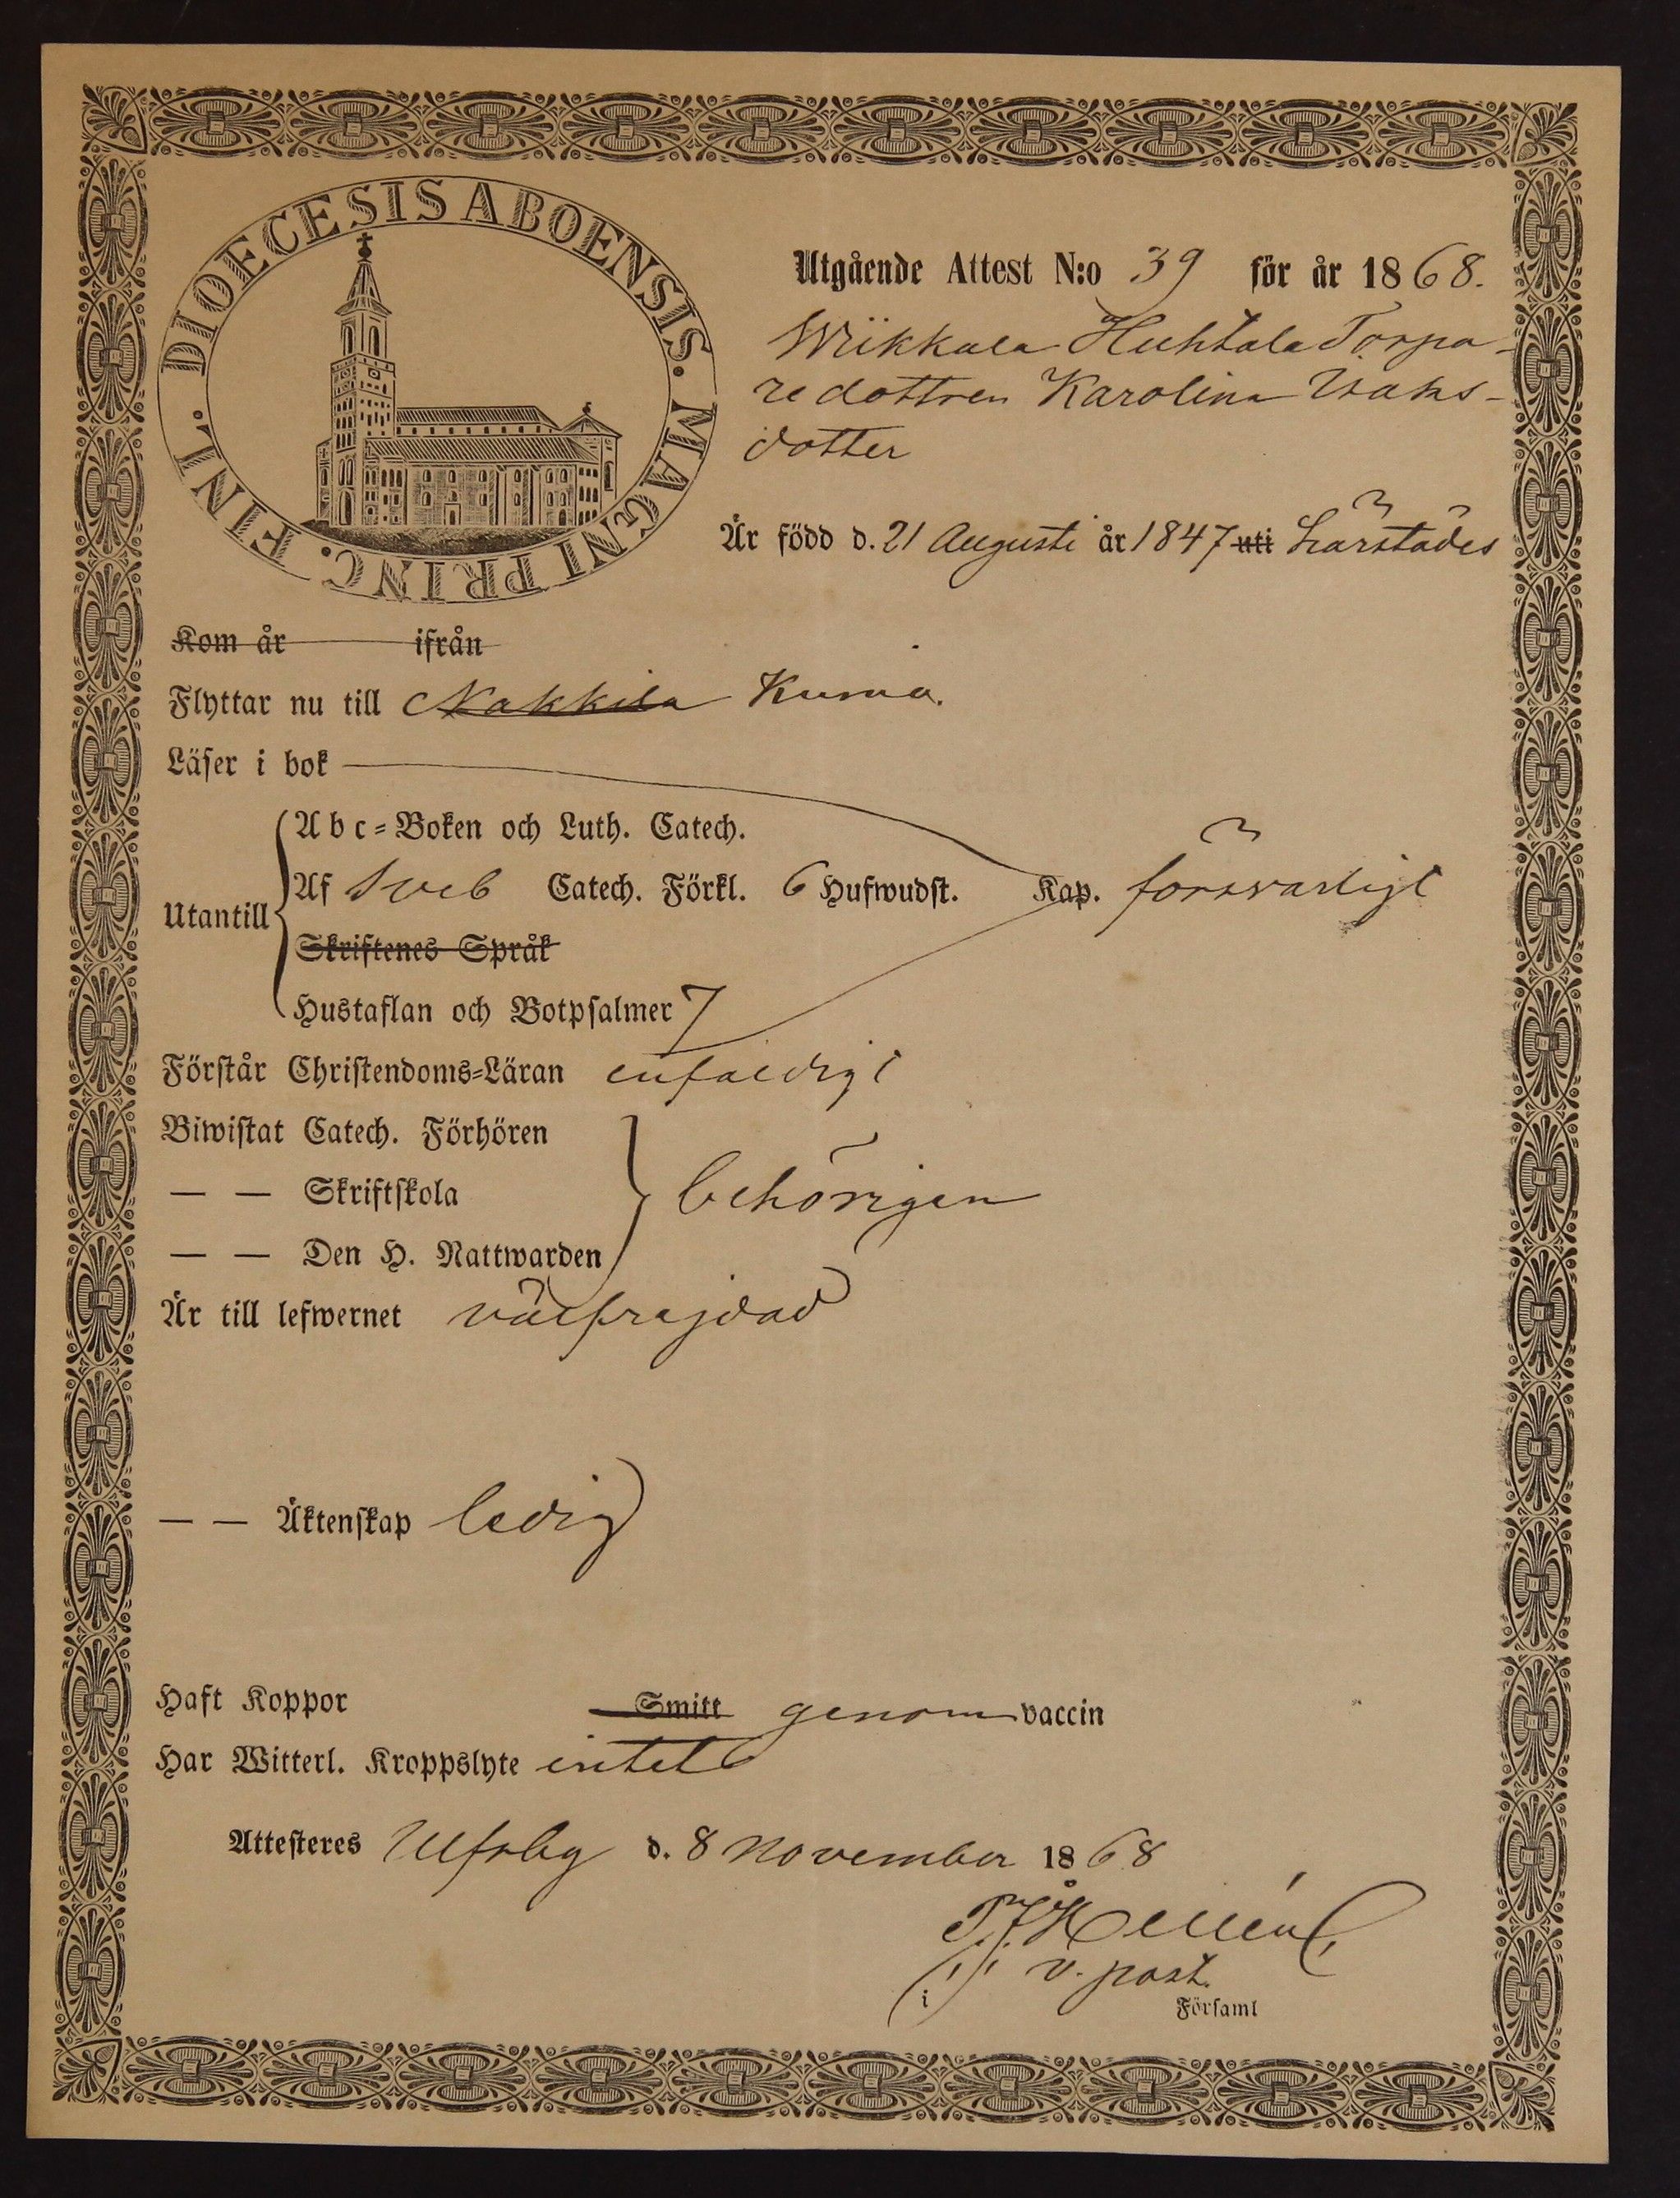 DIOECESIS ABOENSIS. MAGNI PRINC. FINL.
Utgående Attest N:o 39 för år 1868.
Wiikkala Huhtala Torpa-
redottren Karolina Isaks-
dotter
Är född d. 21 Augusti år 1847 uti härstädes
Kom år ifrån
Flyttar nu till Nakkila Kumo.
Läser i bok
Abc-Boken och Luth. Catech.
Utantill
Af Sveb Catech. Förkl. 6 Hufwudst. Kap. försvarligt
Skriftenes Språk
Hustaflan och Botpsalmer 7
Förstår Christendoms-Läran enfaldigt
Biwistat Catech. Förhören
— — Skriftskola behörigen
— — Den H. Nattwarden
Är till lefwernet välfrejdad
— — Äktenskap ledig
Haft Koppor Smitt genom vaccin
Har Witterl. Kroppslyte intet
Attesteres Ulfsby d. 8 November 1868
v. past.
i Församl